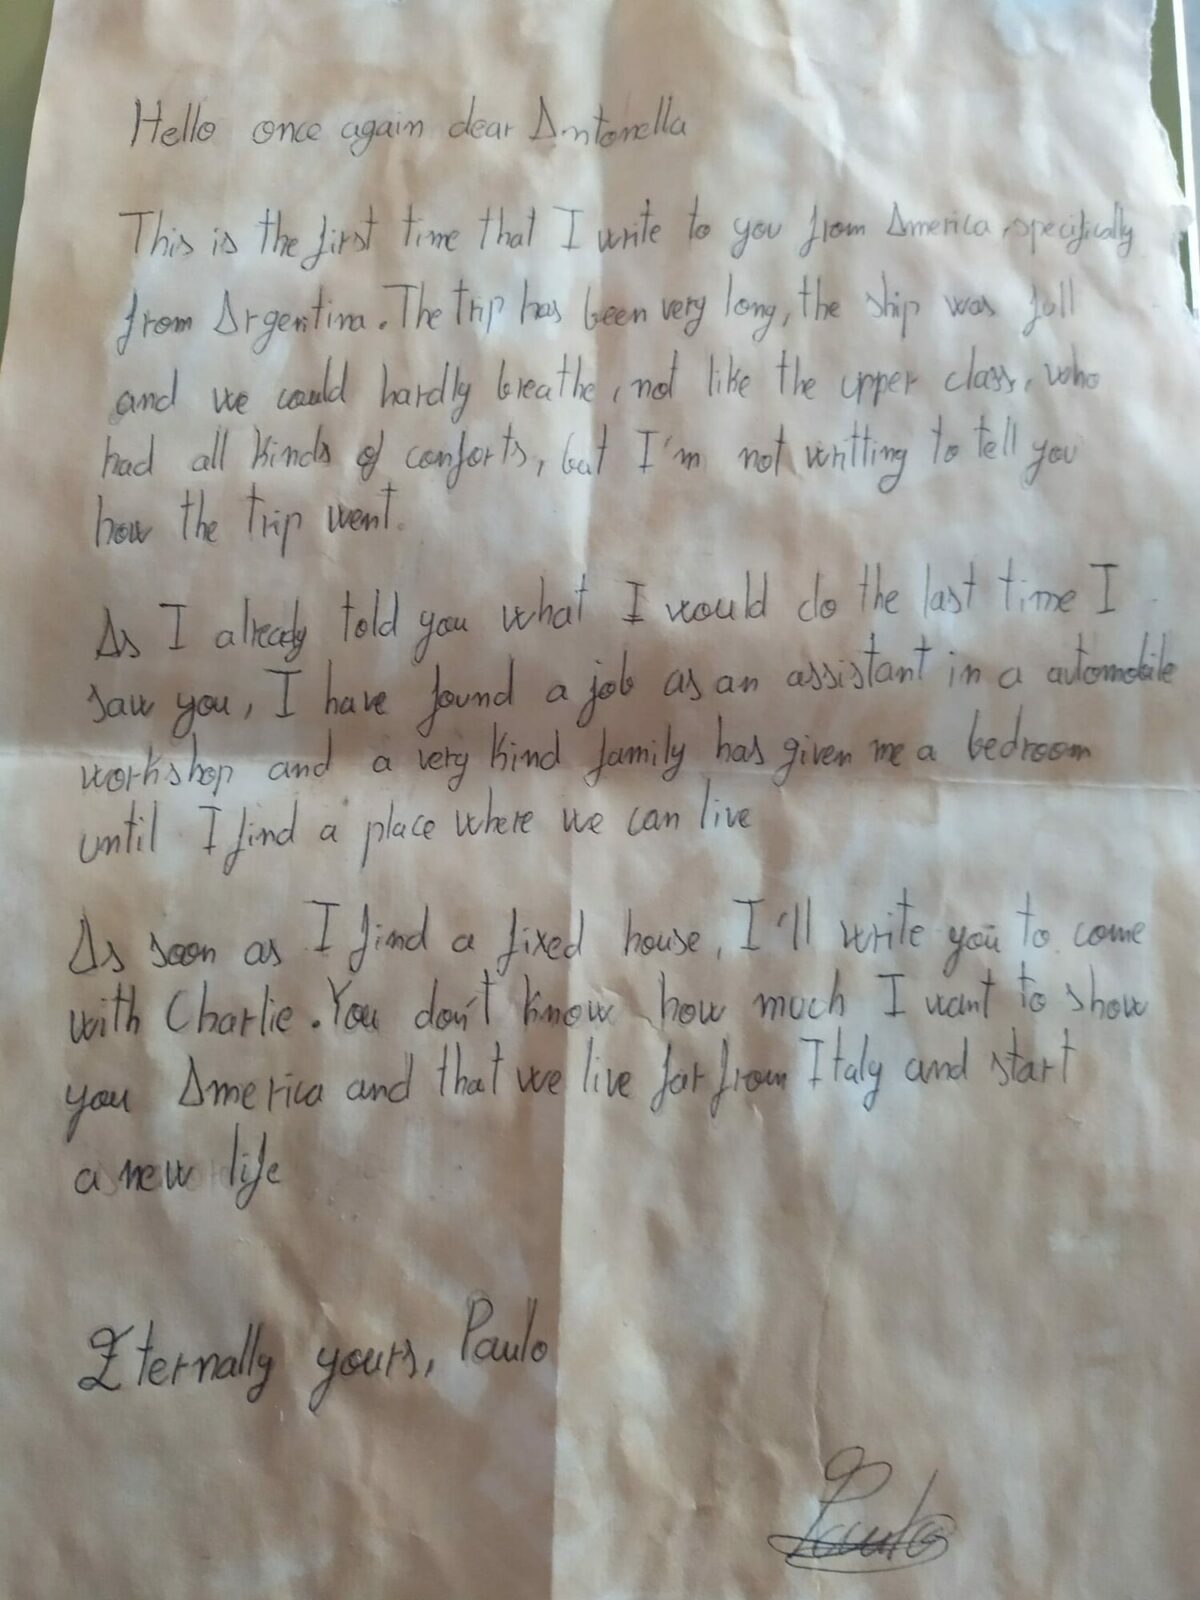 Hello once again dear Antonella
This is the first time that I write to you from America, specifically
from Argentina. The trip has been very long, the ship was full
and we could hardly breathe, not like the upper class, who
had all kinds of conforts, but I'm not writting to tell you
how the trip went.
As I already told you what I would do the last time I
saw you, I have found a job as an assistant in a automobile
workshop and a very kind family has given me a bedroom
until I find a place where we can live
As soon as I find a fixed house, I'll write you to come
with Charlie. You don't know how much I want to show
you America and that we live far from Italy and start
a new life
Eternally yours, Paulo
Paulo